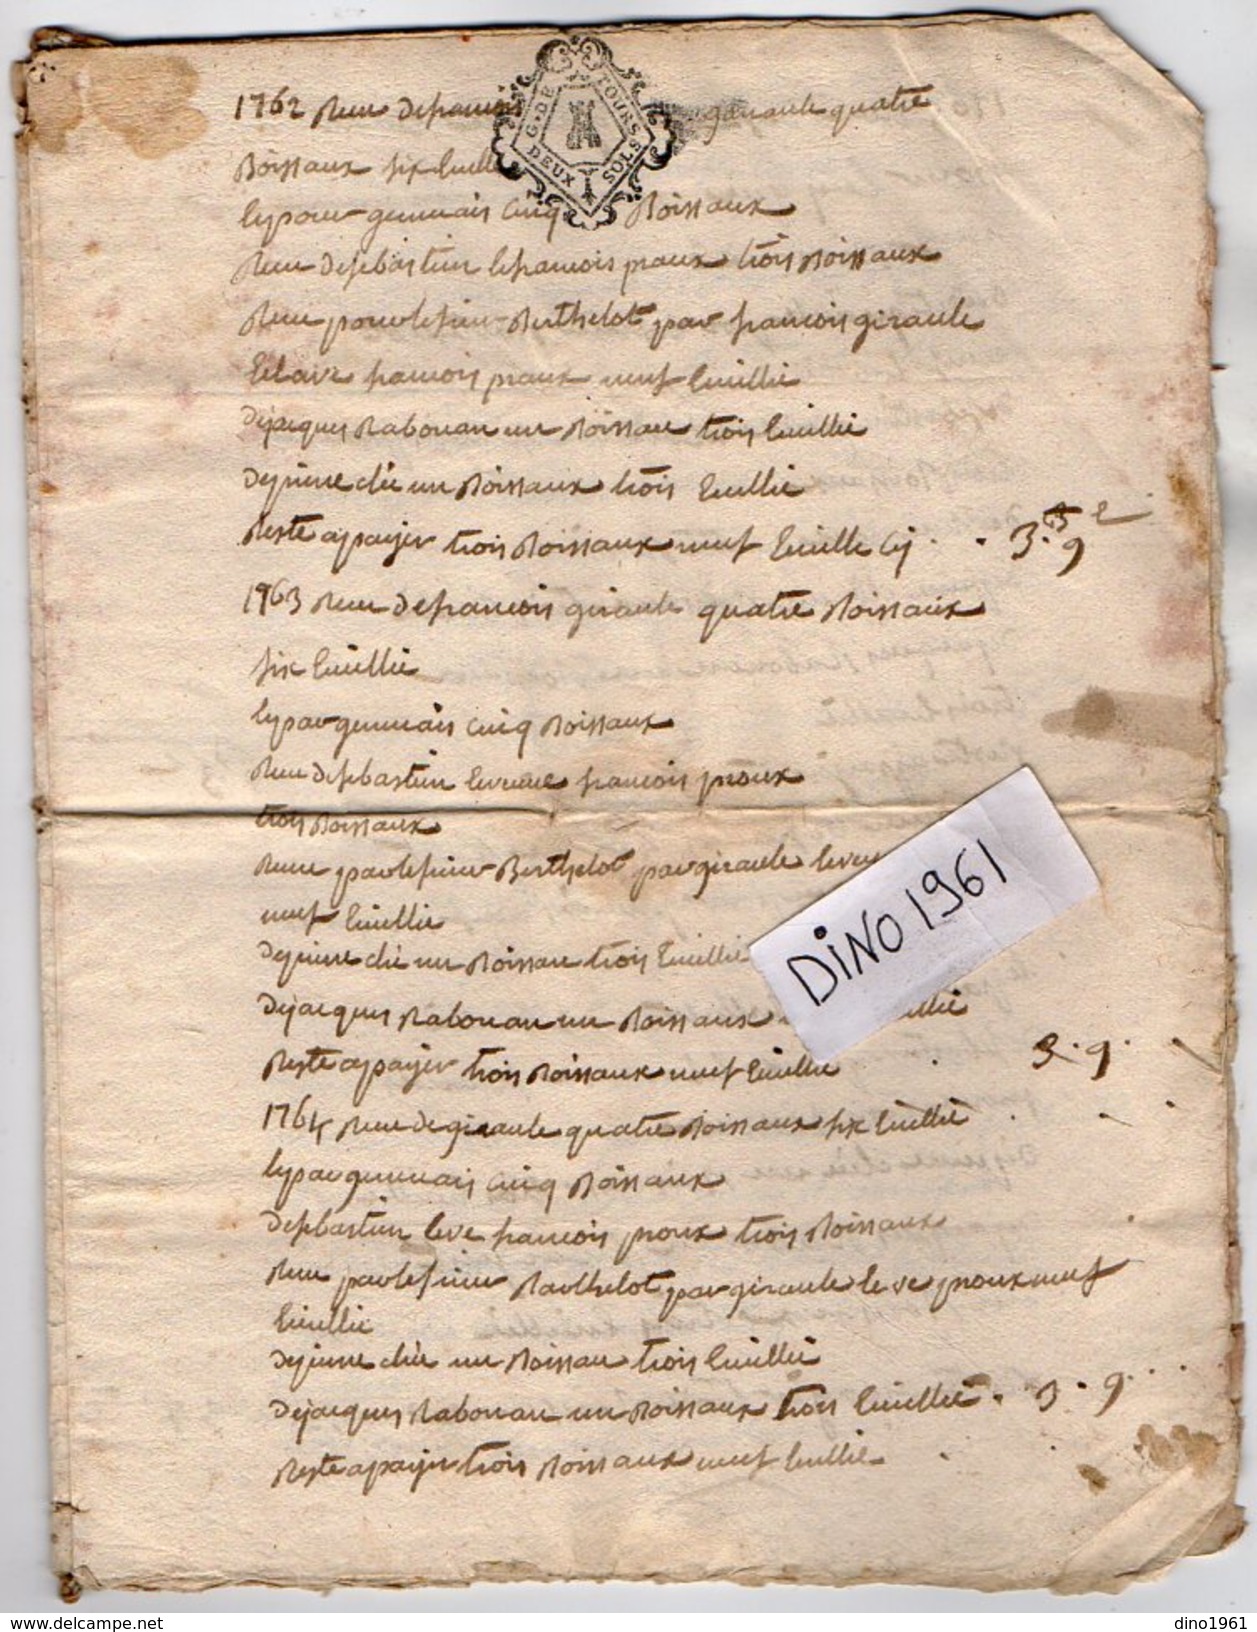 1762 Reçu de francois giraule quatre
G · DE TOURS
DEUX SOLS
Boissaux six Cuille
by pour gennais cinq Boissaux
Reçu de sebastien lefrancois proux trois Boissaux
Reçu pour le sieur Berthelot par francois giraule
francois proux neuf Cuillié
de jacques Rabouan un Boissau trois Cuillié
de pierre chié un Boissaux trois Cuillié
Reste a payer trois Boissaux neuf Cuillie Cy 3 · 9
1763 Reçu de francois giraule quatre Boissaux
six Cuillié
by par gennais cinq Boissaux
Reçu de sebastien leveuve francois proux
trois Boissaux
Reçu par le sieur Berthelot par giraule
neuf Cuillié
de pierre chié un Boissau trois Cuillié
de jacques Rabouan un Boissaux
Reste a payer trois Boissaux neuf Cuillié 3 · 9 ·
1764 Reçu de giraule quatre Boissaux six Cuillié
by par gennais cinq Boissaux
de sebastien leve francois proux trois Boissaux
Reçu par le sieur Barthelot par giraule le ve proux neuf
Cuillié
de pierre chié un Boissau trois Cuillié
de jacques Rabouau un Boissaux trois Cuillié · 3 · 9 ·
Reste a payer trois Boissaux neuf Cuillié
DINO 1961
www.delcampe.net
dino1961